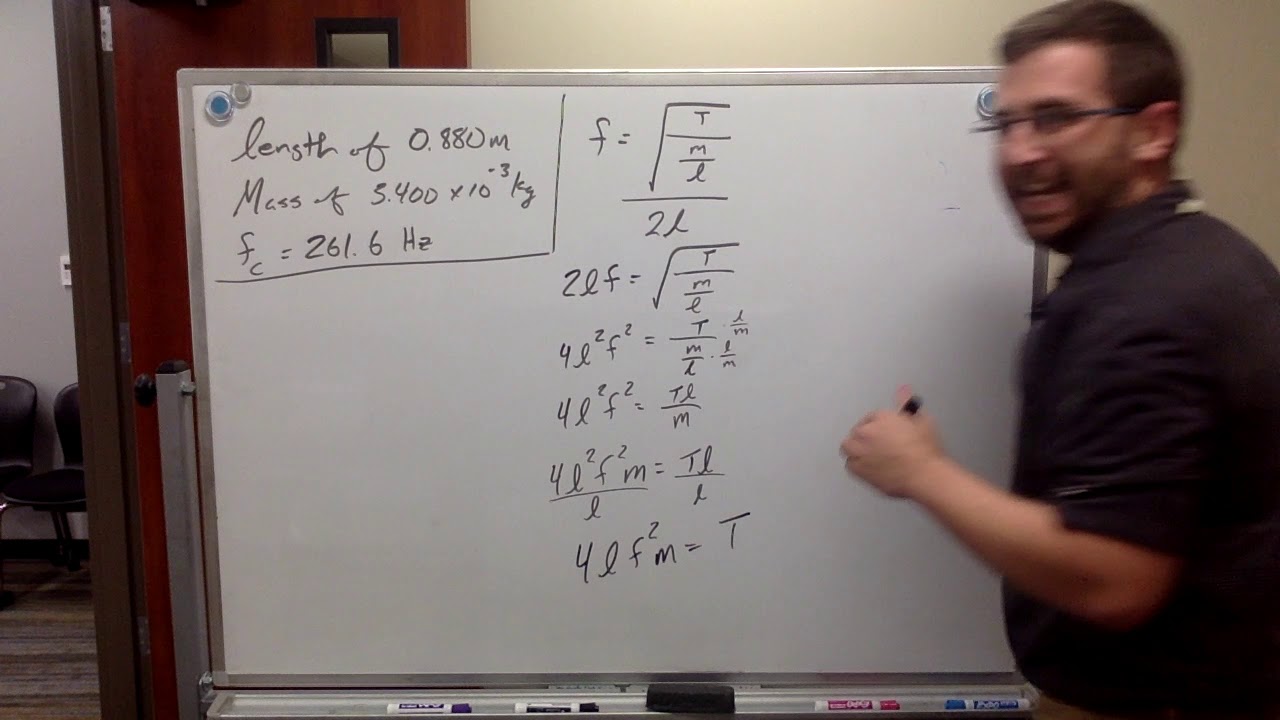 length of 0.880 m
Mass of 5.400 × 10⁻³ kg
f_c = 261.6 Hz
f = √(T / (m/l)) / 2l
2lf = √(T / (m/l))
4l²f² = (T · l/m) / (m/l · l/m)
4l²f² = Tl/m
4l²f²m / l = Tl / l
4lf²m = T